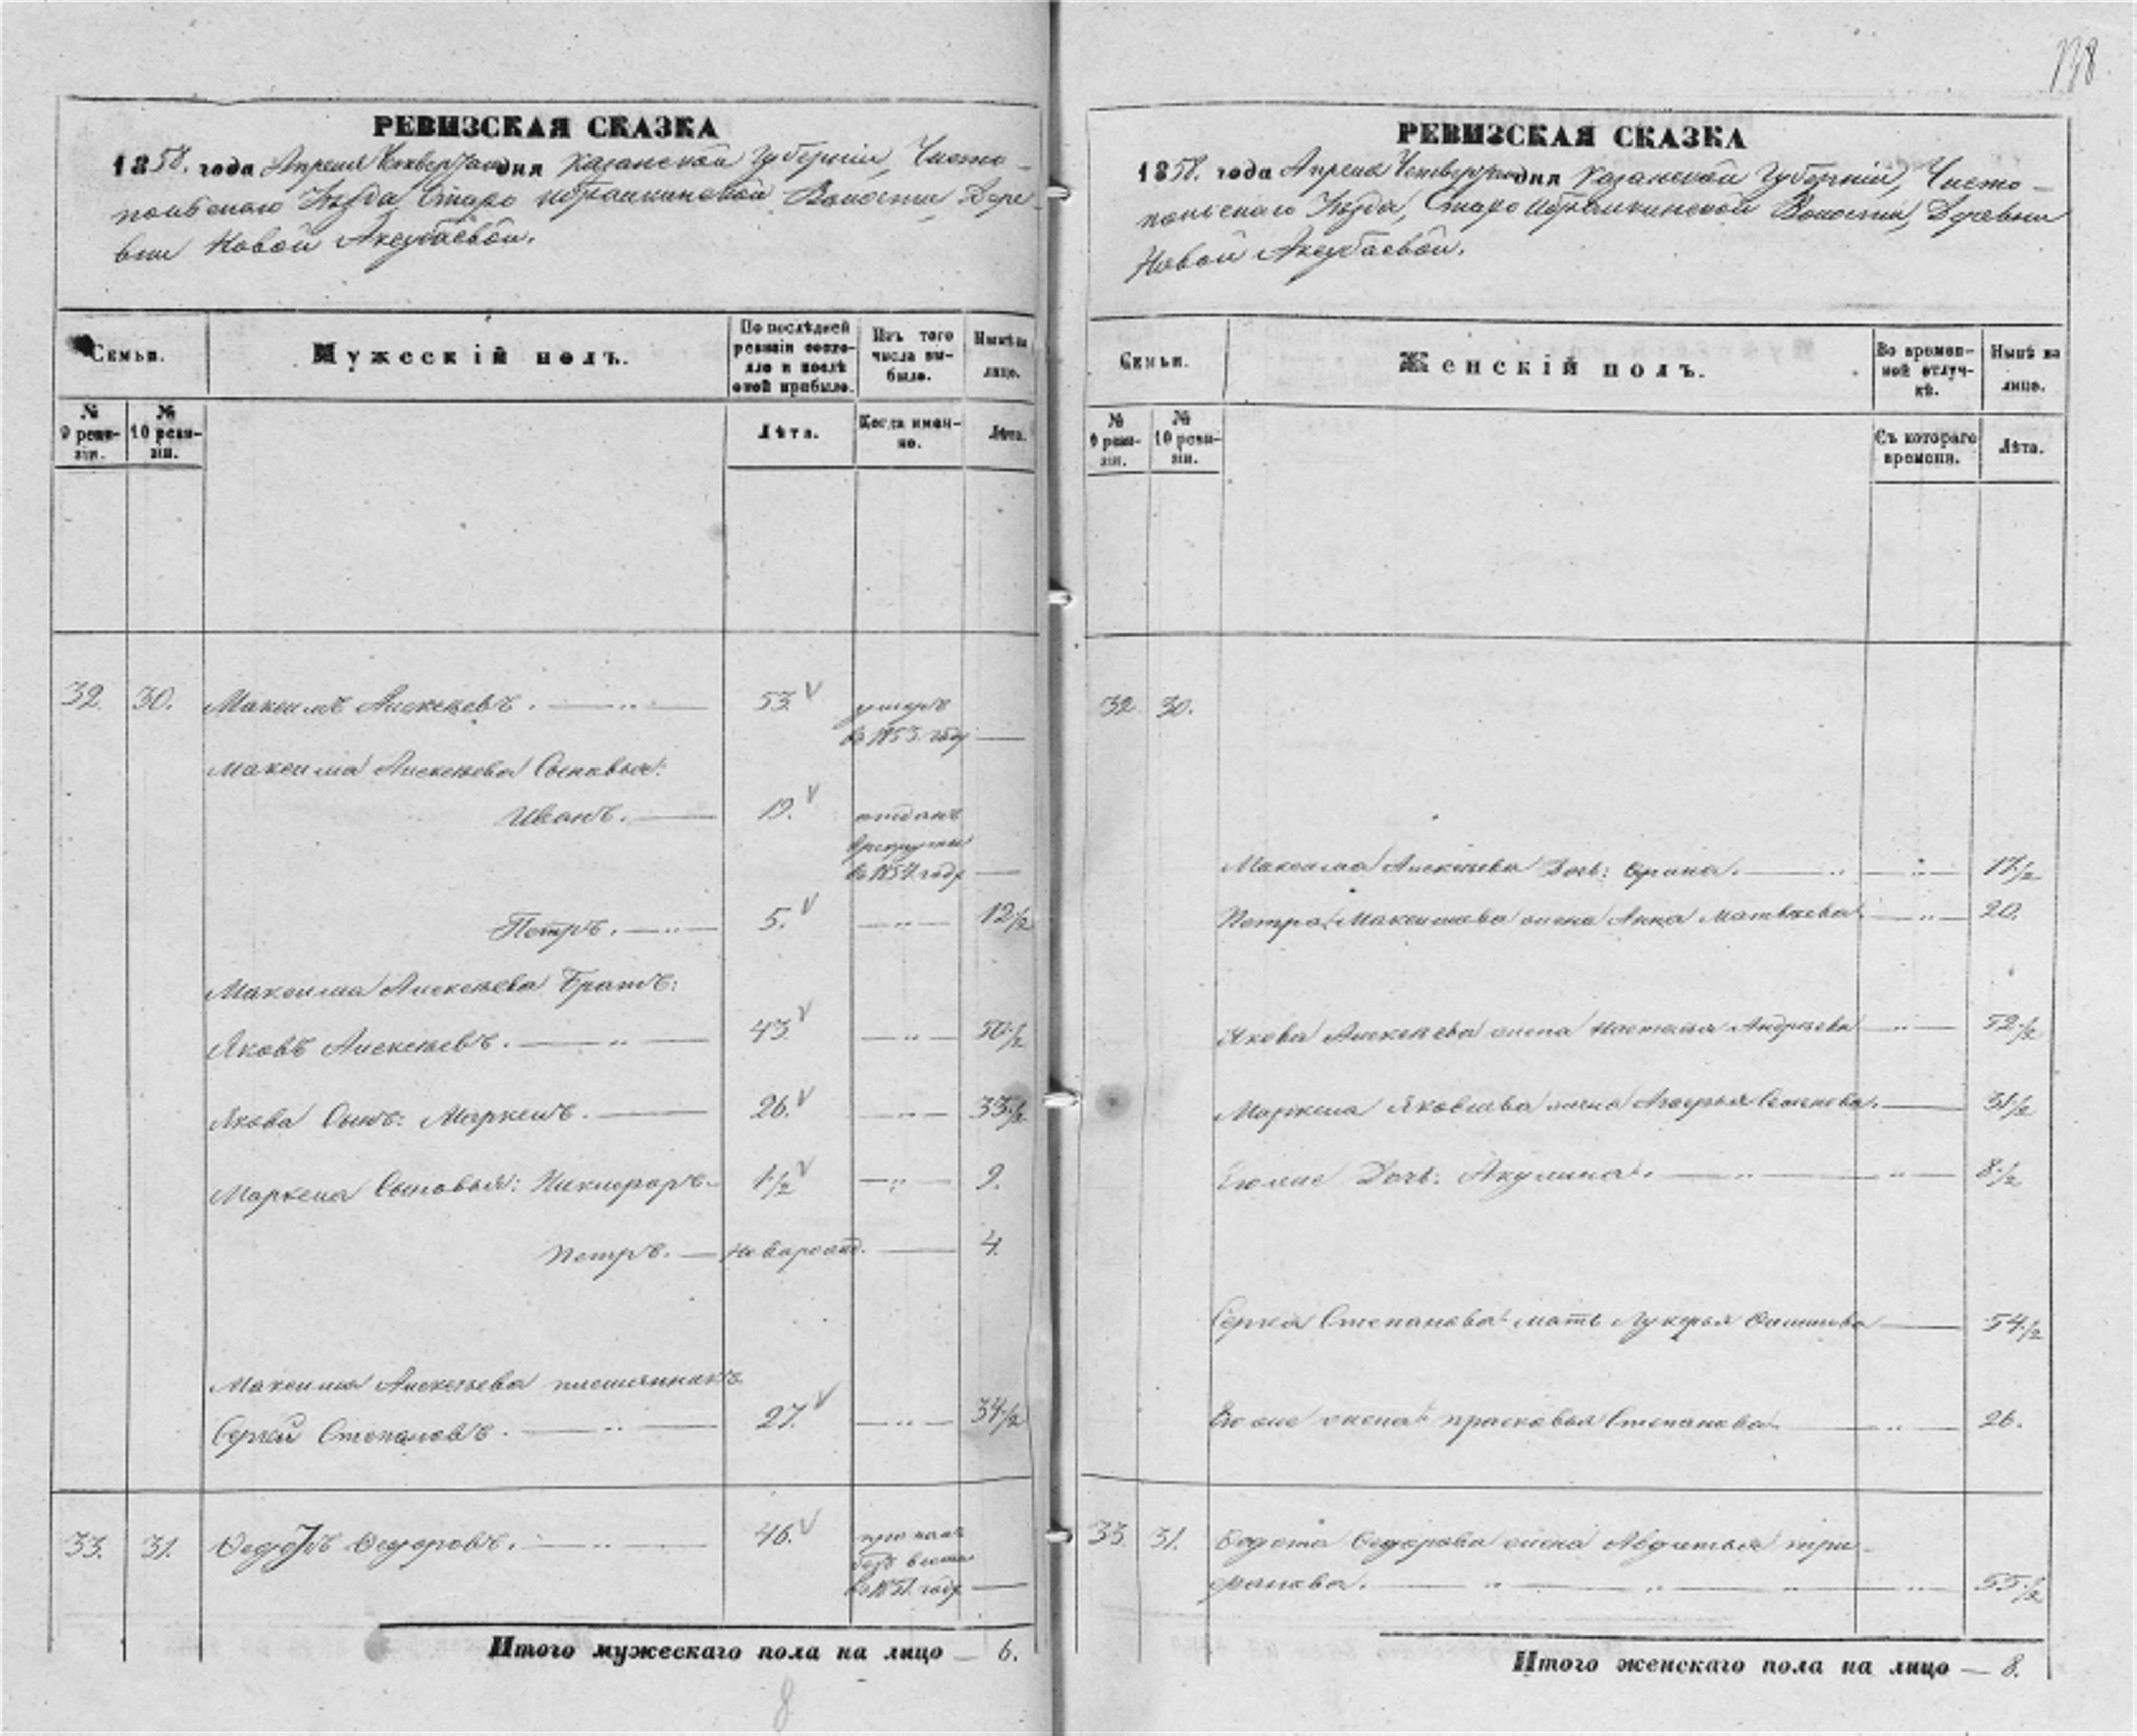 138
РЕВИЗСКАЯ СКАЗКА
1858. года Апреля Четвертаго дня Казанской Губерніи, Чисто-
польскаго Уѣзда Старо Ибрайкинской Волости, Дере-
вни Новой Акузбаевой.
Семьи.
Мужескій полъ.
По послѣдней ревизіи состояло и послѣ оной прибыло.
Изъ того числа выбыло.
Нынѣ на лицо.
№ 9 ревизіи.
№ 10 ревизіи.
Лѣта.
Когда именно.
Лѣта.
32. 30. Максимъ Алексѣевъ. 53. умеръ
въ 1853. году
Максима Алексѣева Сыновья:
Иванъ. 19. отданъ
в рекруты
въ 1854. году
Петръ. 5. 12½
Максима Алексѣева Братъ:
Яковъ Алексѣевъ. 43. 50½
Якова Сынъ: Маркелъ. 26. 33½
Маркела Сыновья: Никифоръ. 1½ 9.
Петръ. новорожд. 4.
Максима Алексѣева племянникъ
Сергей Степановъ. 27. 34½
33. 31. Федотъ Федоровъ. 46. пропалъ
безъ вести
въ 1851. году
Итого мужескаго пола на лицо — 6.
8
РЕВИЗСКАЯ СКАЗКА
1858. года Апреля Четвертаго дня Казанской Губерніи, Чисто-
польскаго Уѣзда, Старо Ибрайкинской Волости, Деревни
Новой Акузбаевой.
Семьи.
Женскій полъ.
Во временной отлучкѣ.
Нынѣ на лицо.
№ 9 ревизіи.
№ 10 ревизіи.
Съ котораго времени.
Лѣта.
32 30.
Максима Алексѣева Дочь: Орина. 17½
Петра Максимова жена Анна Матвѣева. 20.
Якова Алексѣева жена Настасья Андреева 52½
Маркела Яковлева жена Семенова. 31½
Его же Дочь: Акулина. 8½
Сергея Степанова мать Лукерья 54½
Его же жена прасковья Степанова. 26.
33. 31. Федота Федорова жена Авдотья Три-
фонова. 55½
Итого женскаго пола на лицо — 8.